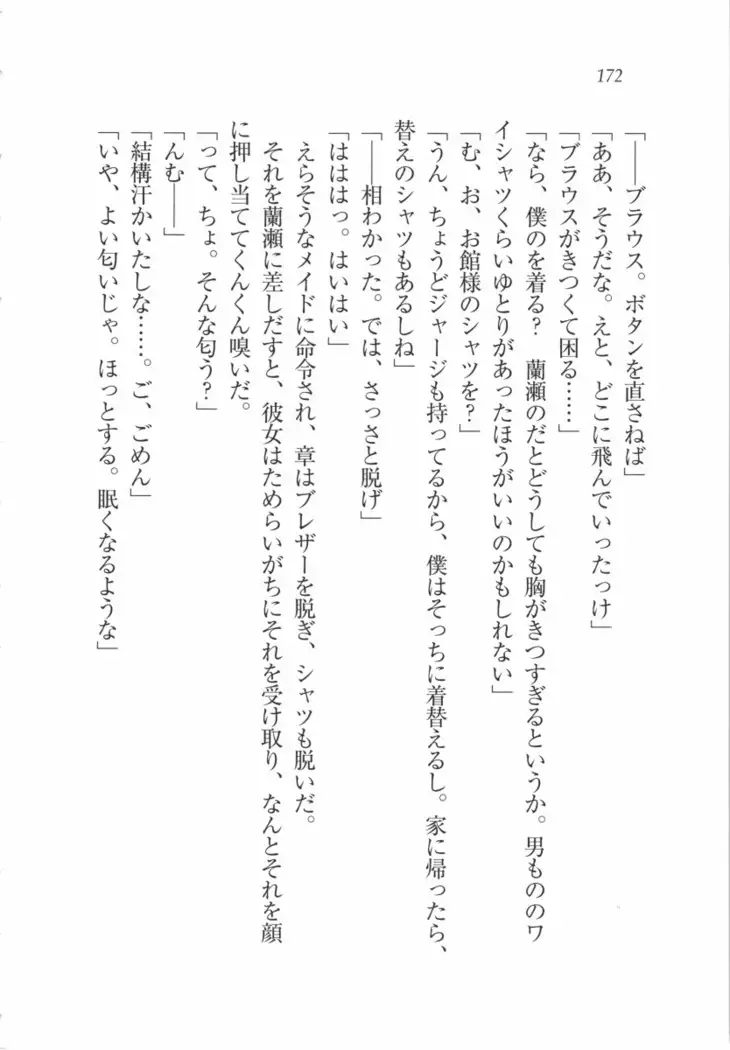 172
「――ブラウス。ボタンを直さねば」
「ああ、そうだな。えと、どこに飛んでいったっけ」
「ブラウスがきつくて困る……」
「なら、僕のを着る?　蘭瀬のだとどうしても胸がきつすぎるというか。男もののワ
イシャツくらいゆとりがあったほうがいいのかもしれない」
「む、お、お館様のシャツを?」
「うん、ちょうどジャージも持ってるから、僕はそっちに着替えるし。家に帰ったら、
替えのシャツもあるしね」
「――相わかった。では、さっさと脱げ」
「はははっ。はいはい」
えらそうなメイドに命令され、章はブレザーを脱ぎ、シャツも脱いだ。
それを蘭瀬に差しだすと、彼女はためらいがちにそれを受け取り、なんとそれを顔
に押し当ててくんくん嗅いだ。
「って、ちょ。そんな匂う?」
「んむ――」
「結構汗かいたしな……。ご、ごめん」
「いや、よい匂いじゃ。ほっとする。眠くなるような」